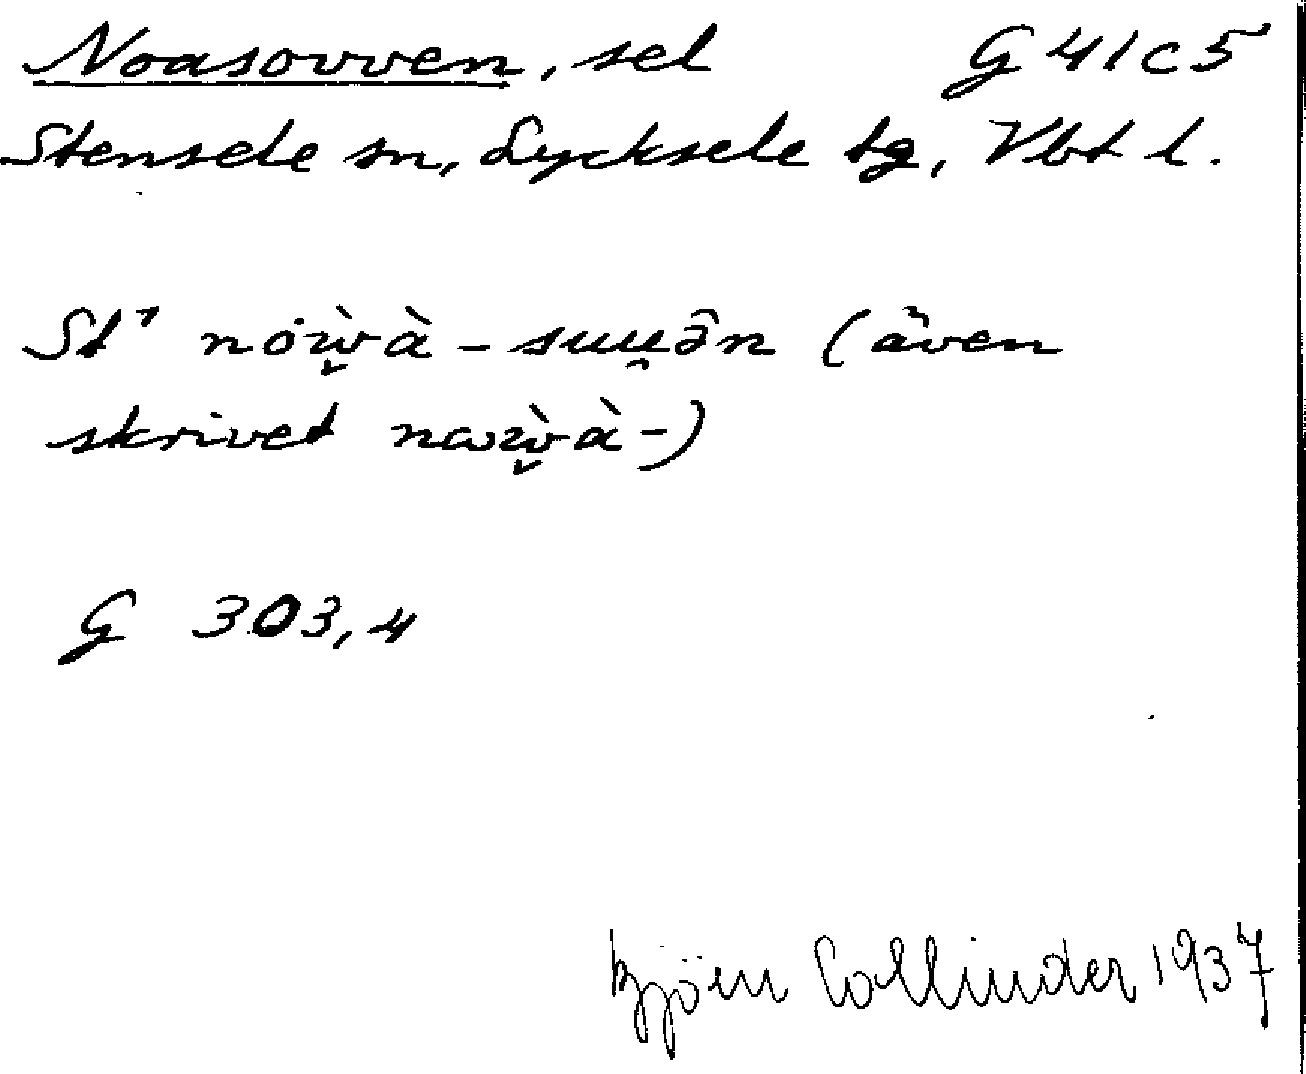 Noasovven, sel G 41 c 5
Stensele sn, Lycksele tg, Vbt l.
St¹ nȯẁ̬à - suu̯ə̂n (även
skrivet nꞷẁ̬à-)
G 303,4
Björn Collinder 1937